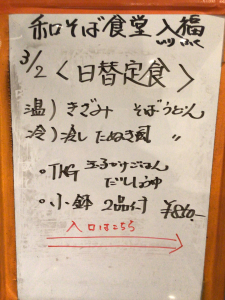 和そば食堂 入福
いり ふく
3/2 〈日替定食〉
温) きざみ そばうどん
冷) 冷し たぬき風 〃
。TKG 玉子かけごはん
だししょうゆ
。小鉢 2品付 ¥860.-
入口はこちら